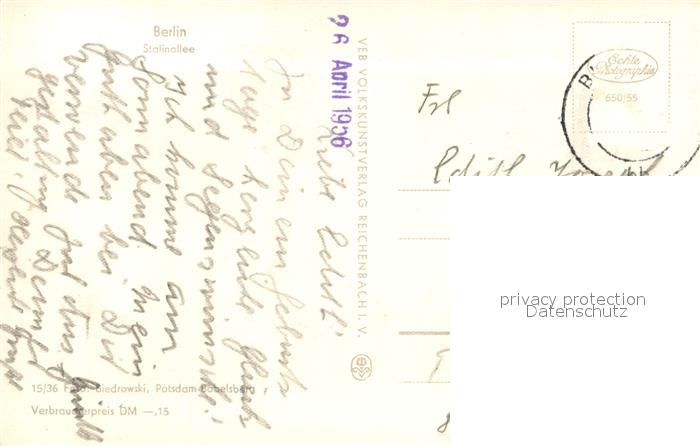 Berlin
Stalinallee
26 April 1956
VEB VOLKSKUNSTVERLAG REICHENBACH I. V.
Echte
Photographie
650/55
Frl
Edith
Liebe Edith!
Zu Deinem Geburts
tage herzliche Glück
und Segenswünsche!
Ich komme am
Sonnabend. Mein
Guthaben bei Dir
verwende
gestaltung Deines
15/36 Foto: Biedrowski, Potsdam-Babelsberg
Verbraucherpreis DM —,15
privacy protection
Datenschutz